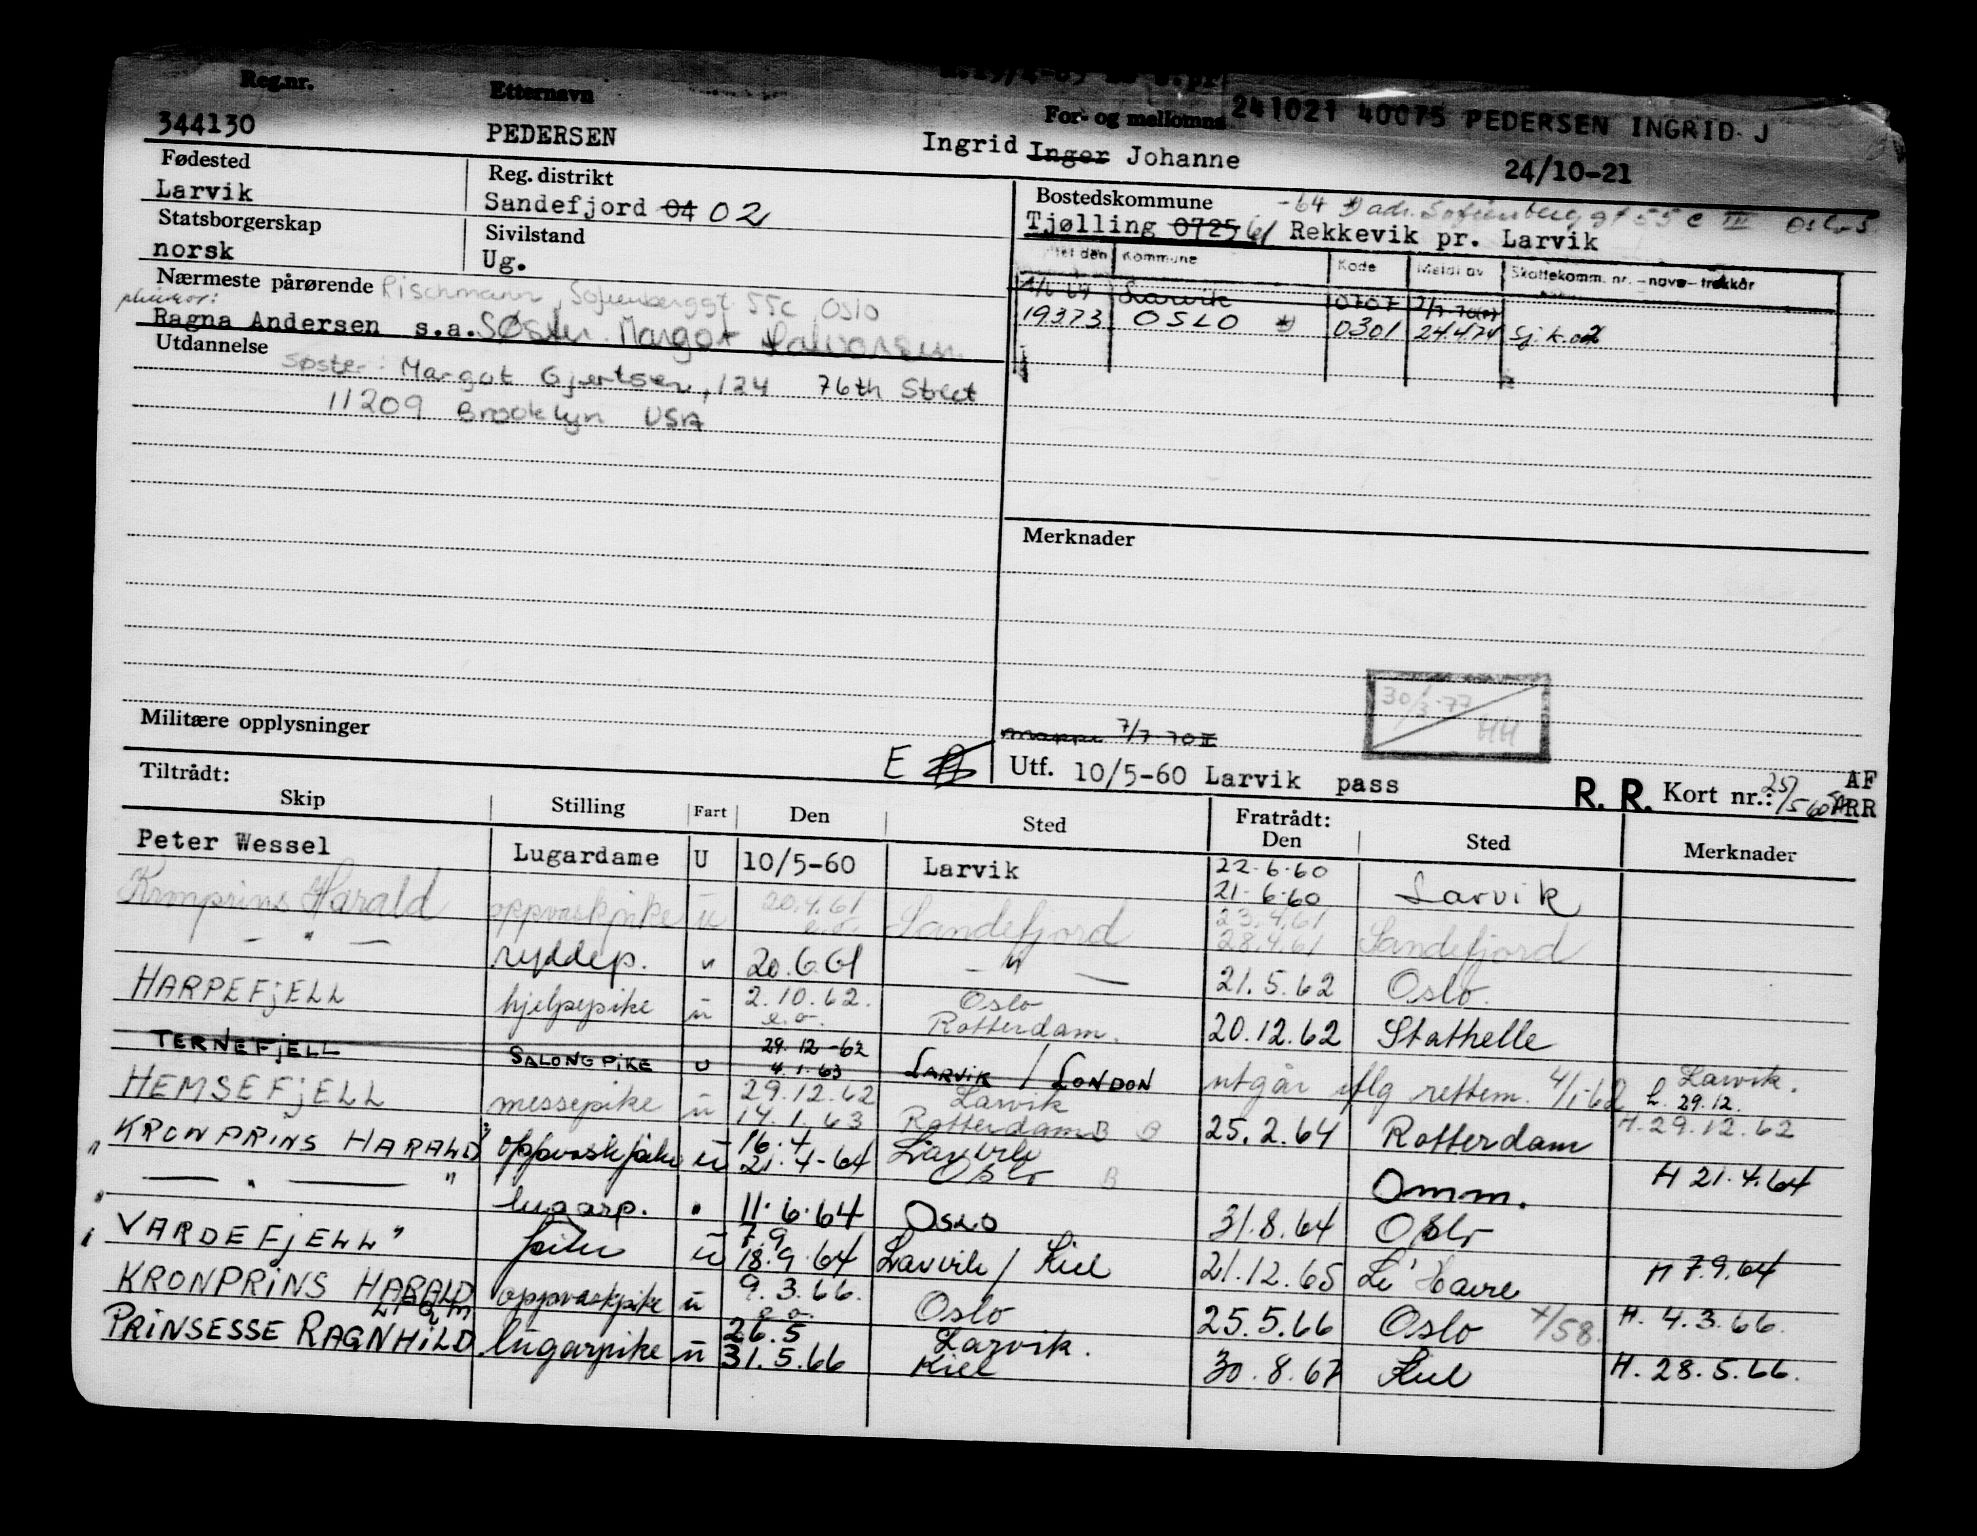 Reg.nr. Etternavn For- og mellomna 241021 40075 PEDERSEN INGRID J
344130 PEDERSEN Ingrid Inger Johanne 24/10-21
Fødested Reg. distrikt Bostedskommune -64 adr. Sofienberggt 55 c III Oslo 5
Larvik Sandefjord 04 02 Tjølling 0725 61 Rekkevik pr. Larvik
Statsborgerskap Sivilstand
norsk Ug.
Kommune Kode Meldt av Skattekomm. nr. - navn - trekkår
Larvik 0707 7/7-70
19373 OSLO 0301 24.4.74 Sj.k.
Nærmeste pårørende Rischmann, Sofienberggt 55c OSLO
Ragna Andersen s.a. Søster Margot Halvorsen
Utdannelse
Søster: Margot Gjertsen, 124 76th Street
11209 Brooklyn USA
Merknader
30/3-77
HH
Militære opplysninger
mappe 7/7-70
E
Utf. 10/5-60 Larvik pass R. R. Kort nr.: 25/5 60 AF
ARR
Tiltrådt: Fratrådt:
Skip Stilling Fart Den Sted Den Sted Merknader
Peter Wessel Lugardame U 10/5-60 Larvik 22.6.60
21.6.60 Larvik
Kronprins Harald oppvaskpike u 20.4.61 e.o. Sandefjord 23.4.61
28.4.61 Sandefjord
— " — ryddep. " 20.6.61 — " — 21.5.62 Oslo.
HARPEFJELL hjelpepike u 2.10.62. e.o. Oslo Rotterdam. 20.12.62 Stathelle
TERNEFJELL SALONGPIKE U 29.12-62 4.1.63 LARVIK / LONDON utgår iflg rettem. 4/1-62 Larvik. h. 29.12.
HEMSEFJELL messepike u 29.12.62 14.1.63 Larvik Rotterdam B B 25.2.64 Rotterdam H.29.12.62
" KRONPRINS HARALD" oppvaskpike u 16.4 21.4-64 Larvik Oslo B Omm. H 21.4.64
" — " — " lugarp. " 11.6.64 OSLO 31.8.64 Oslo
" VARDEFJELL" pike u 7.9 18.9.64 Larvik / Kiel 21.12.65 Le Havre H 7.9.64
KRONPRINS HARALD oppvaskpike u 9.3.66. e.o. Oslo 25.5.66 Oslo 4/58. H. 4.3.66.
PRINSESSE RAGNHILD lugarpike u 26.5 31.5.66 Larvik. Kiel 30.8.67 Kiel H. 28.5.66.